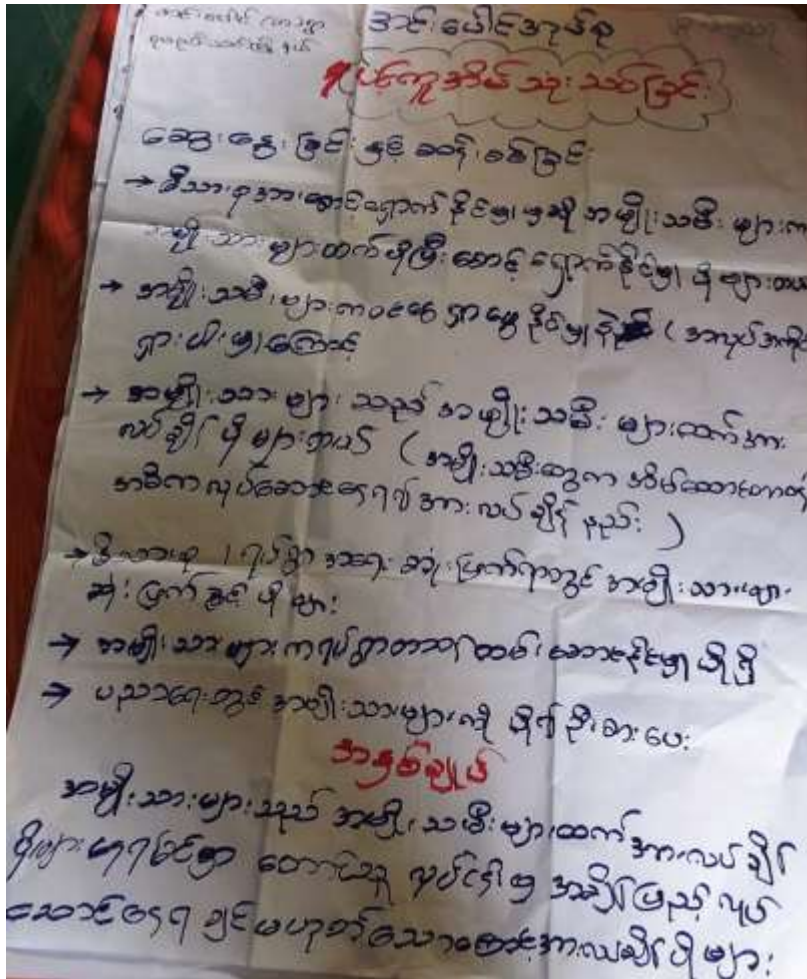 အင်းပေါင်အုပ်စု
ဆွေးနွေးခြင်းနှင့် ဆန်းစစ်ခြင်း
→ မိသားစုအားစောင့်ရှောက်နိုင်မှု၊ မှုဆို အမျိုးသမီးများက
အမျိုးသားများထက်ပိုပြီးစောင့်ရှောက်နိုင်မှု ပိုများတယ်
→ အမျိုးသမီးများကဝင်ငွေရှာဖွေနိုင်မှုနဲ (အလုပ်အကိုင်
ရှားပါးမှုကြောင့်
→ အမျိုးသားများသည် အမျိုးသမီးများထက်အား
လပ်ချိန်ပိုများတယ် (အမျိုးသမီးတွေက အိမ်ထောင်တာဝန်
အဓိကလုပ်ဆောင်နေရ၍အားလပ်ချိန်နည်း)
→ မိသားစု / ရပ်ရွာအရေးဆုံးဖြတ်ရာတွင် အမျိုးသားများ
ဆုံးဖြတ်ခွင့်ပိုများ
→ အမျိုးသားများကရပ်ရွာတာဝန်ထမ်းဆောင်နိုင်မှုပို၍
→ ပညာရေးတွင် အမျိုးသားများကို ပိုဦးစားပေး
အနှစ်ချုပ်
အမျိုးသားများသည် အမျိုးသမီးများထက်အားလပ်ချိန်
ပိုများ တောင်သူလုပ်ငန်းမှ အချိန်ပြည့်လုပ်
ဆောင်နေရခြင်းမဟုတ်သောကြောင့်အားလပ်ချိန်ပိုများ